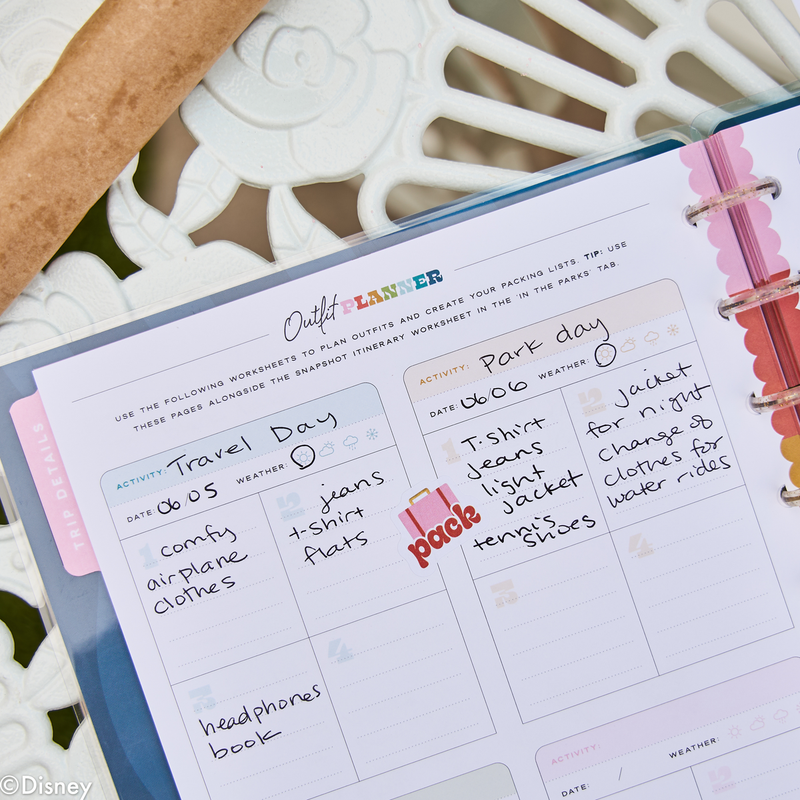 Outfit PLANNER
USE THE FOLLOWING WORKSHEETS TO PLAN OUTFITS AND CREATE YOUR PACKING LISTS. TIP: USE
THESE PAGES ALONGSIDE THE SNAPSHOT ITINERARY WORKSHEET IN THE 'IN THE PARKS' TAB.
TRIP DETAILS
ACTIVITY: Travel Day
DATE: 06/05 WEATHER:
1 comfy
airplane
clothes
2 jeans
t-shirt
flats
3
headphones
book
4
pack
ACTIVITY: Park day
DATE: 06/06 WEATHER:
1 T-shirt
jeans
light
jacket
tennis
shoes
2 jacket
for night
change of
clothes for
water rides
3
4
ACTIVITY:
DATE: / WEATHER:
2
©Disney